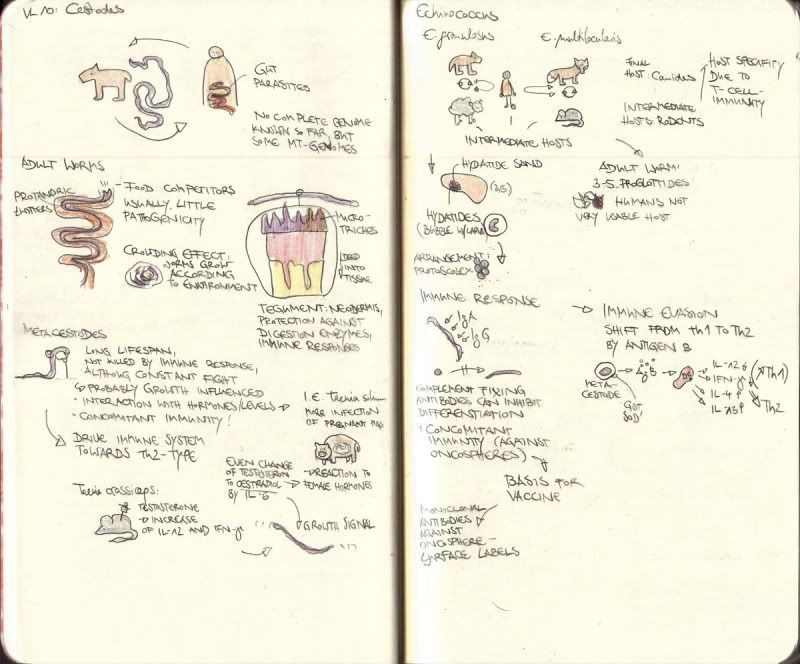 VL 10: Cestodes
GUT
PARASITES
NO COMPLETE GENOME
KNOWN SO FAR, BUT
SOME MT-GENOMES
ADULT WORMS
PROTANDRIC
- FOOD COMPETITORS
USUALLY, LITTLE
PATHOGENICITY
CROWDING EFFECT:
WORMS GROW
ACCORDING
TO ENVIRONMENT
MICRO-
TRICHES
DEEP
INTO
TISSUE
TEGUMENT: NEODERMIS,
PROTECTION AGAINST
DIGESTION ENZYMES,
IMMUNE RESPONSES
METACESTODES
LONG LIFESPAN,
NOT KILLED BY IMMUNE RESPONSE,
ALTHOUG CONSTANT FIGHT
PROBABLY GROWTH INFLUENCED
· INTERACTION WITH HORMONES/LEVELS →
· CONCOMITANT IMMUNITY!
I.E. taenia solium
MORE INFECTION
OF PREGNANT PIGS
→ DRIVE IMMUNE SYSTEM
TOWARDS Th2-TYPE
EVEN CHANGE
OF TESTOSTERON
TO OESTRADIOL
BY IL-6
→ REACTION TO
FEMALE HORMONES
Taenia crassiceps:
TESTOSTERONE
→ INCREASE
OF IL-12 AND IFN-γ
GROWTH SIGNAL
Echinococcus
E. granulosus
E. multilocularis
FINAL
HOST: Canidae
INTERMEDIATE
HOSTS: RODENTS
HOST SPECIFITY
DUE TO
T-CELL-
IMMUNITY
INTERMEDIATE HOSTS
HYDATIDE SAND
HYDATIDES
(BUBBLE W/LARVA)
ARRANGEMENT:
PROTOSCOLEX
ADULT WORM:
3-5 PROGLOTTIDES
HUMANS NOT
VERY USABLE HOST
IMMUNE RESPONSE
IgA
IgG
COMPLEMENT FIXING
ANTIBODIES CAN INHIBIT
DIFFERENTIATION
· CONCOMITANT
IMMUNITY (AGAINST
ONCOSPHERES)
BASIS FOR
VACCINE
MONOCLONAL
ANTIBODIES
AGAINST
ONCOSPHERE-
SURFACE LABELS
→ IMMUNE EVASION
SHIFT FROM Th1 TO Th2
BY ANTIGEN B
META-
CESTODE
AgB
GST
SOD
IL-12
IFN-γ
IL-4
IL-13
Th1
Th2